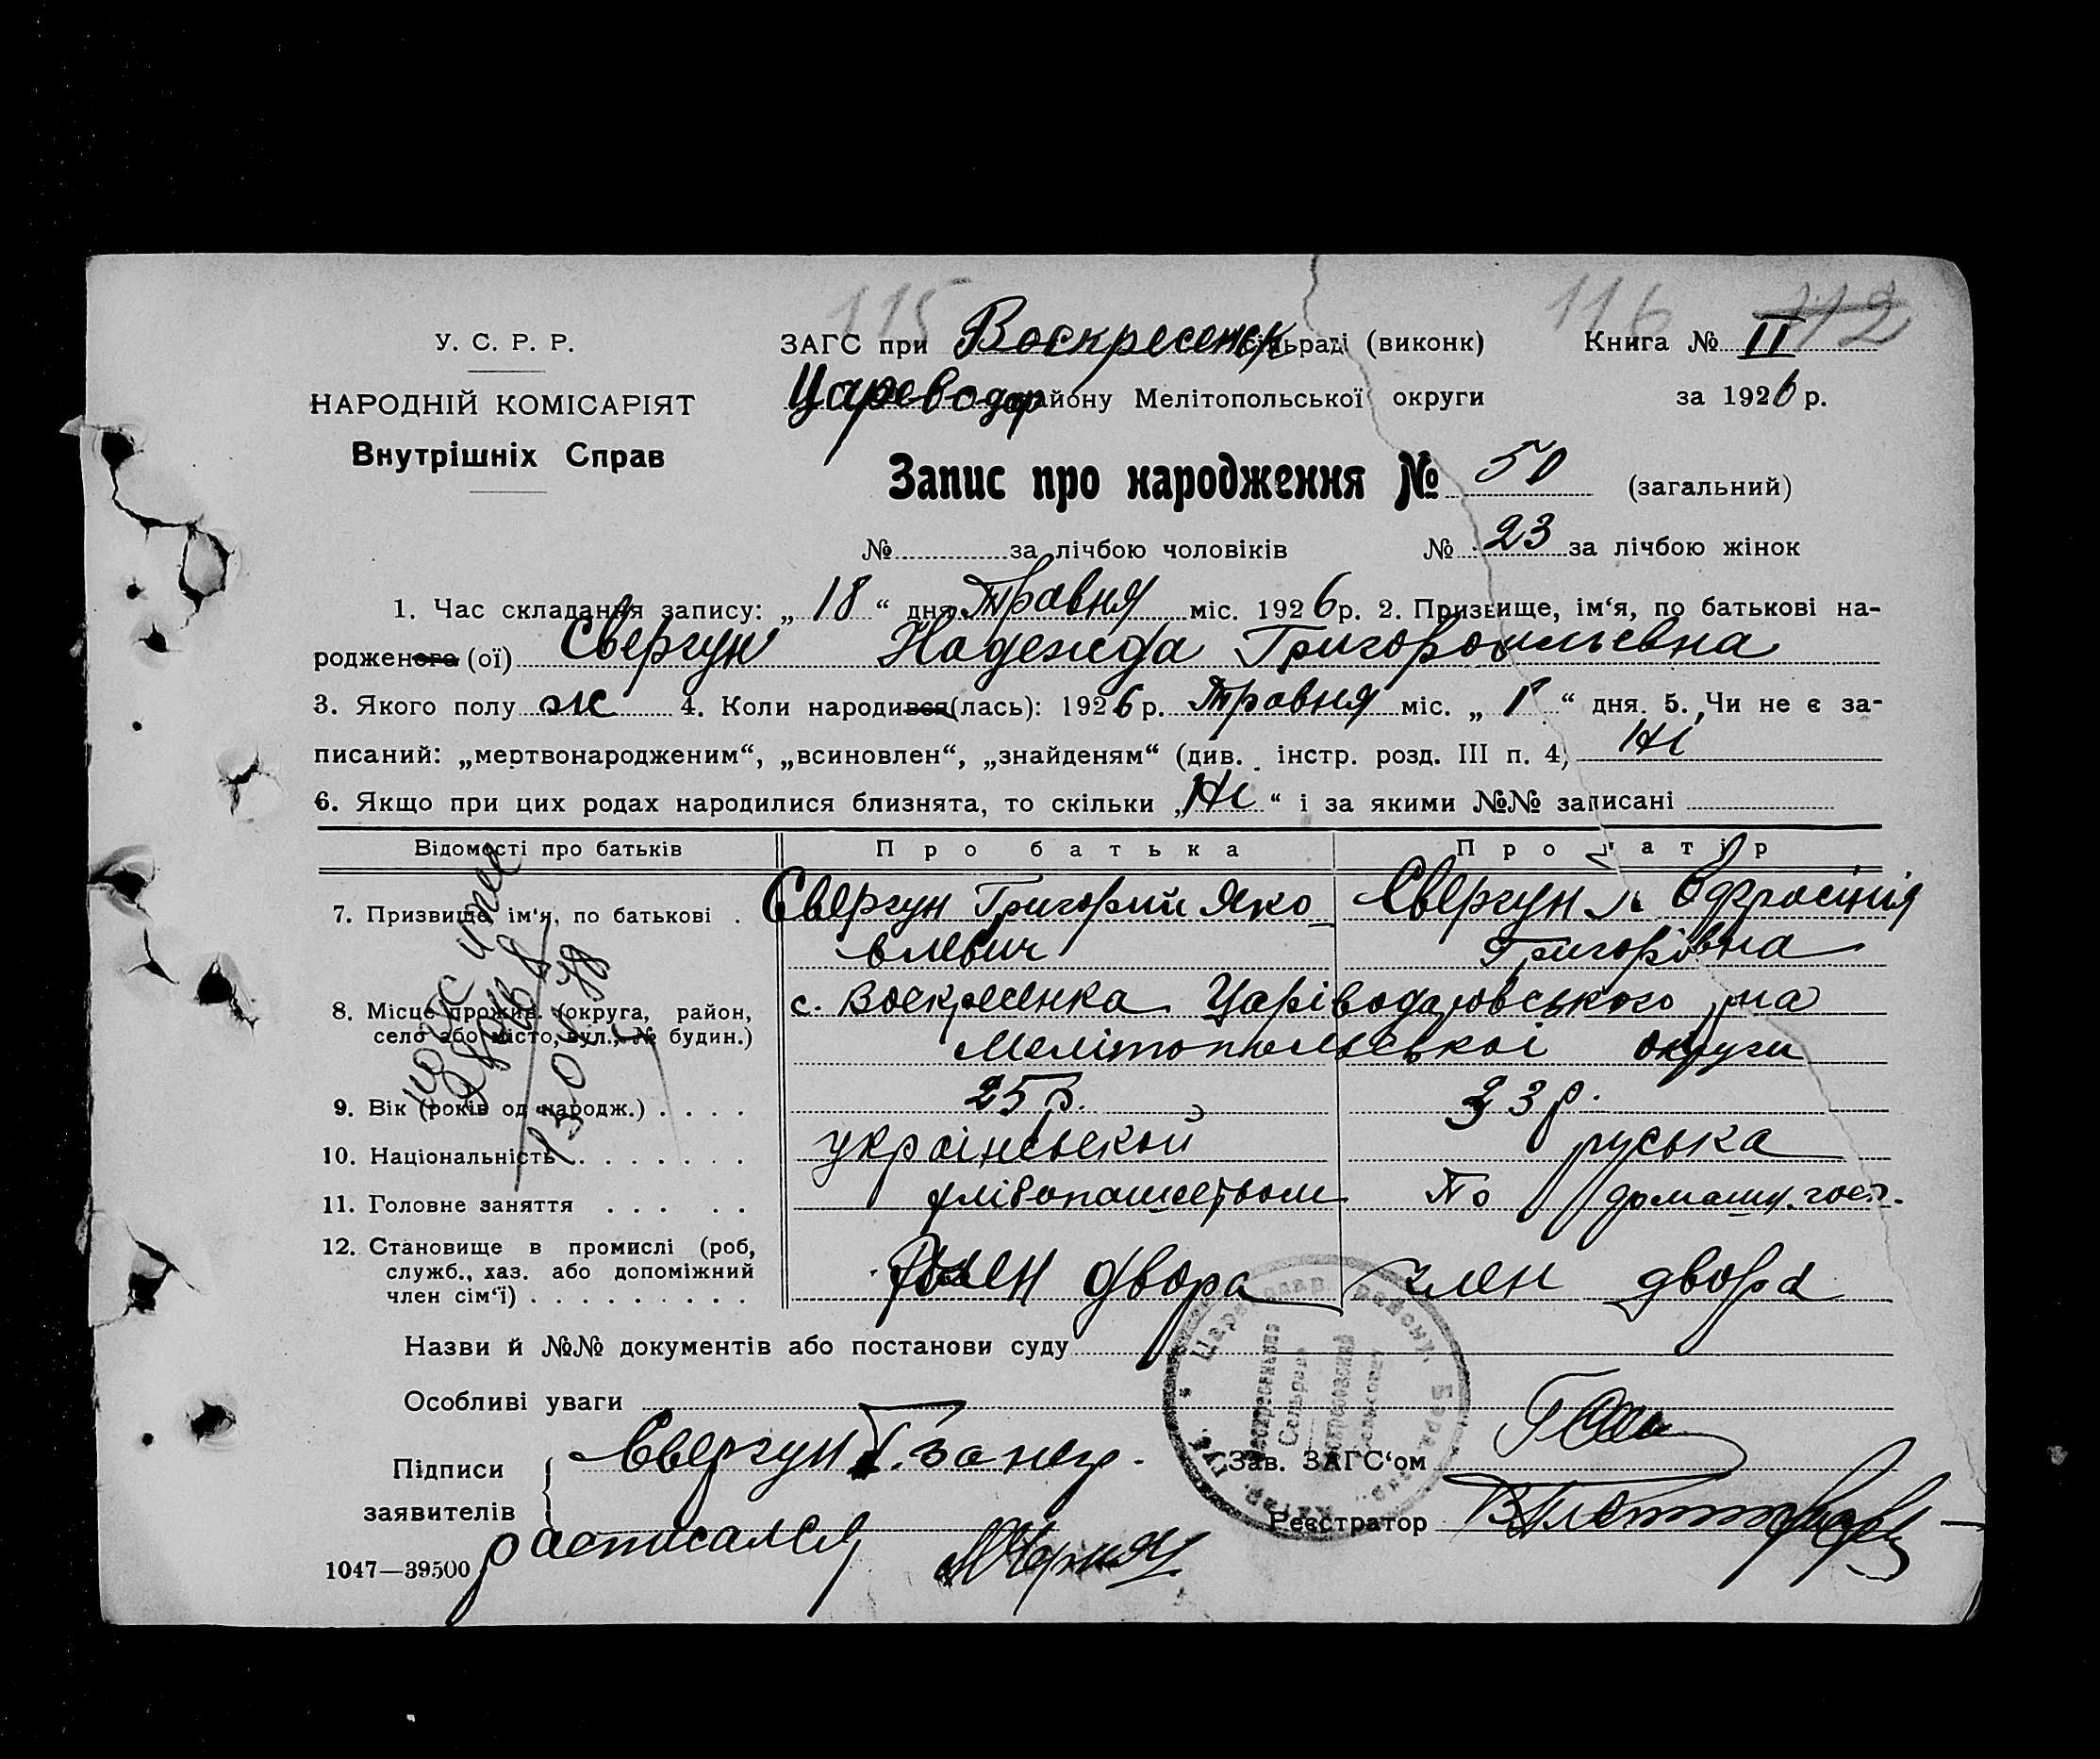 115 116 112
У. С. Р. Р. ЗАГС при Воскресенск сільраді (виконк) Книга № II
НАРОДНІЙ КОМІСАРІЯТ Цареводар району Мелітопольської округи за 1926 р.
Внутрішніх Справ
Запис про народження № 50 (загальний)
№ за лічбою чоловіків № 23 за лічбою жінок
1. Час складання запису: „ 18 “ дня Травня міс. 1926 р. 2. Призвище, ім‘я, по батькові на-
родженого (ої) Свергун Надежда
3. Якого полу ж 4. Коли народився(лась): 1926 р. Травня міс. „ 1 “ дня. 5. Чи не є за-
писаний: „мертвонародженим“, „всиновлен“, „знайденям“ (див. інстр. розд. III п. 4) Ні
6. Якщо при цих родах народилися близнята, то скільки „ Ні “ і за якими №№ записані
Відомості про батьків Про батька Про матір
7. Призвище, ім‘я, по батькові . Свергун Григорий Яко Свергун
влевич Григорівна
8. Місце прожив. (округа, район, с. Воскресенка
село або місто, вул., № будин.) Мелітопольської округи
9. Вік (років од народж.) . . . . 25 р. 23 р.
10. Національність . . . . . . . українськой руська
11. Головне заняття . . . . . хлібопашеством По домашн. госп.
12. Становище в промислі (роб, член двора член двора
служб., хаз. або допоміжний
член сім‘ї) . . . . . . . . .
Назви й №№ документів або постанови суду
Особливі уваги
Підписи Свергун Г. за негр. Зав. ЗАГС‘ом
заявителів расписался Реєстратор
1047—39500